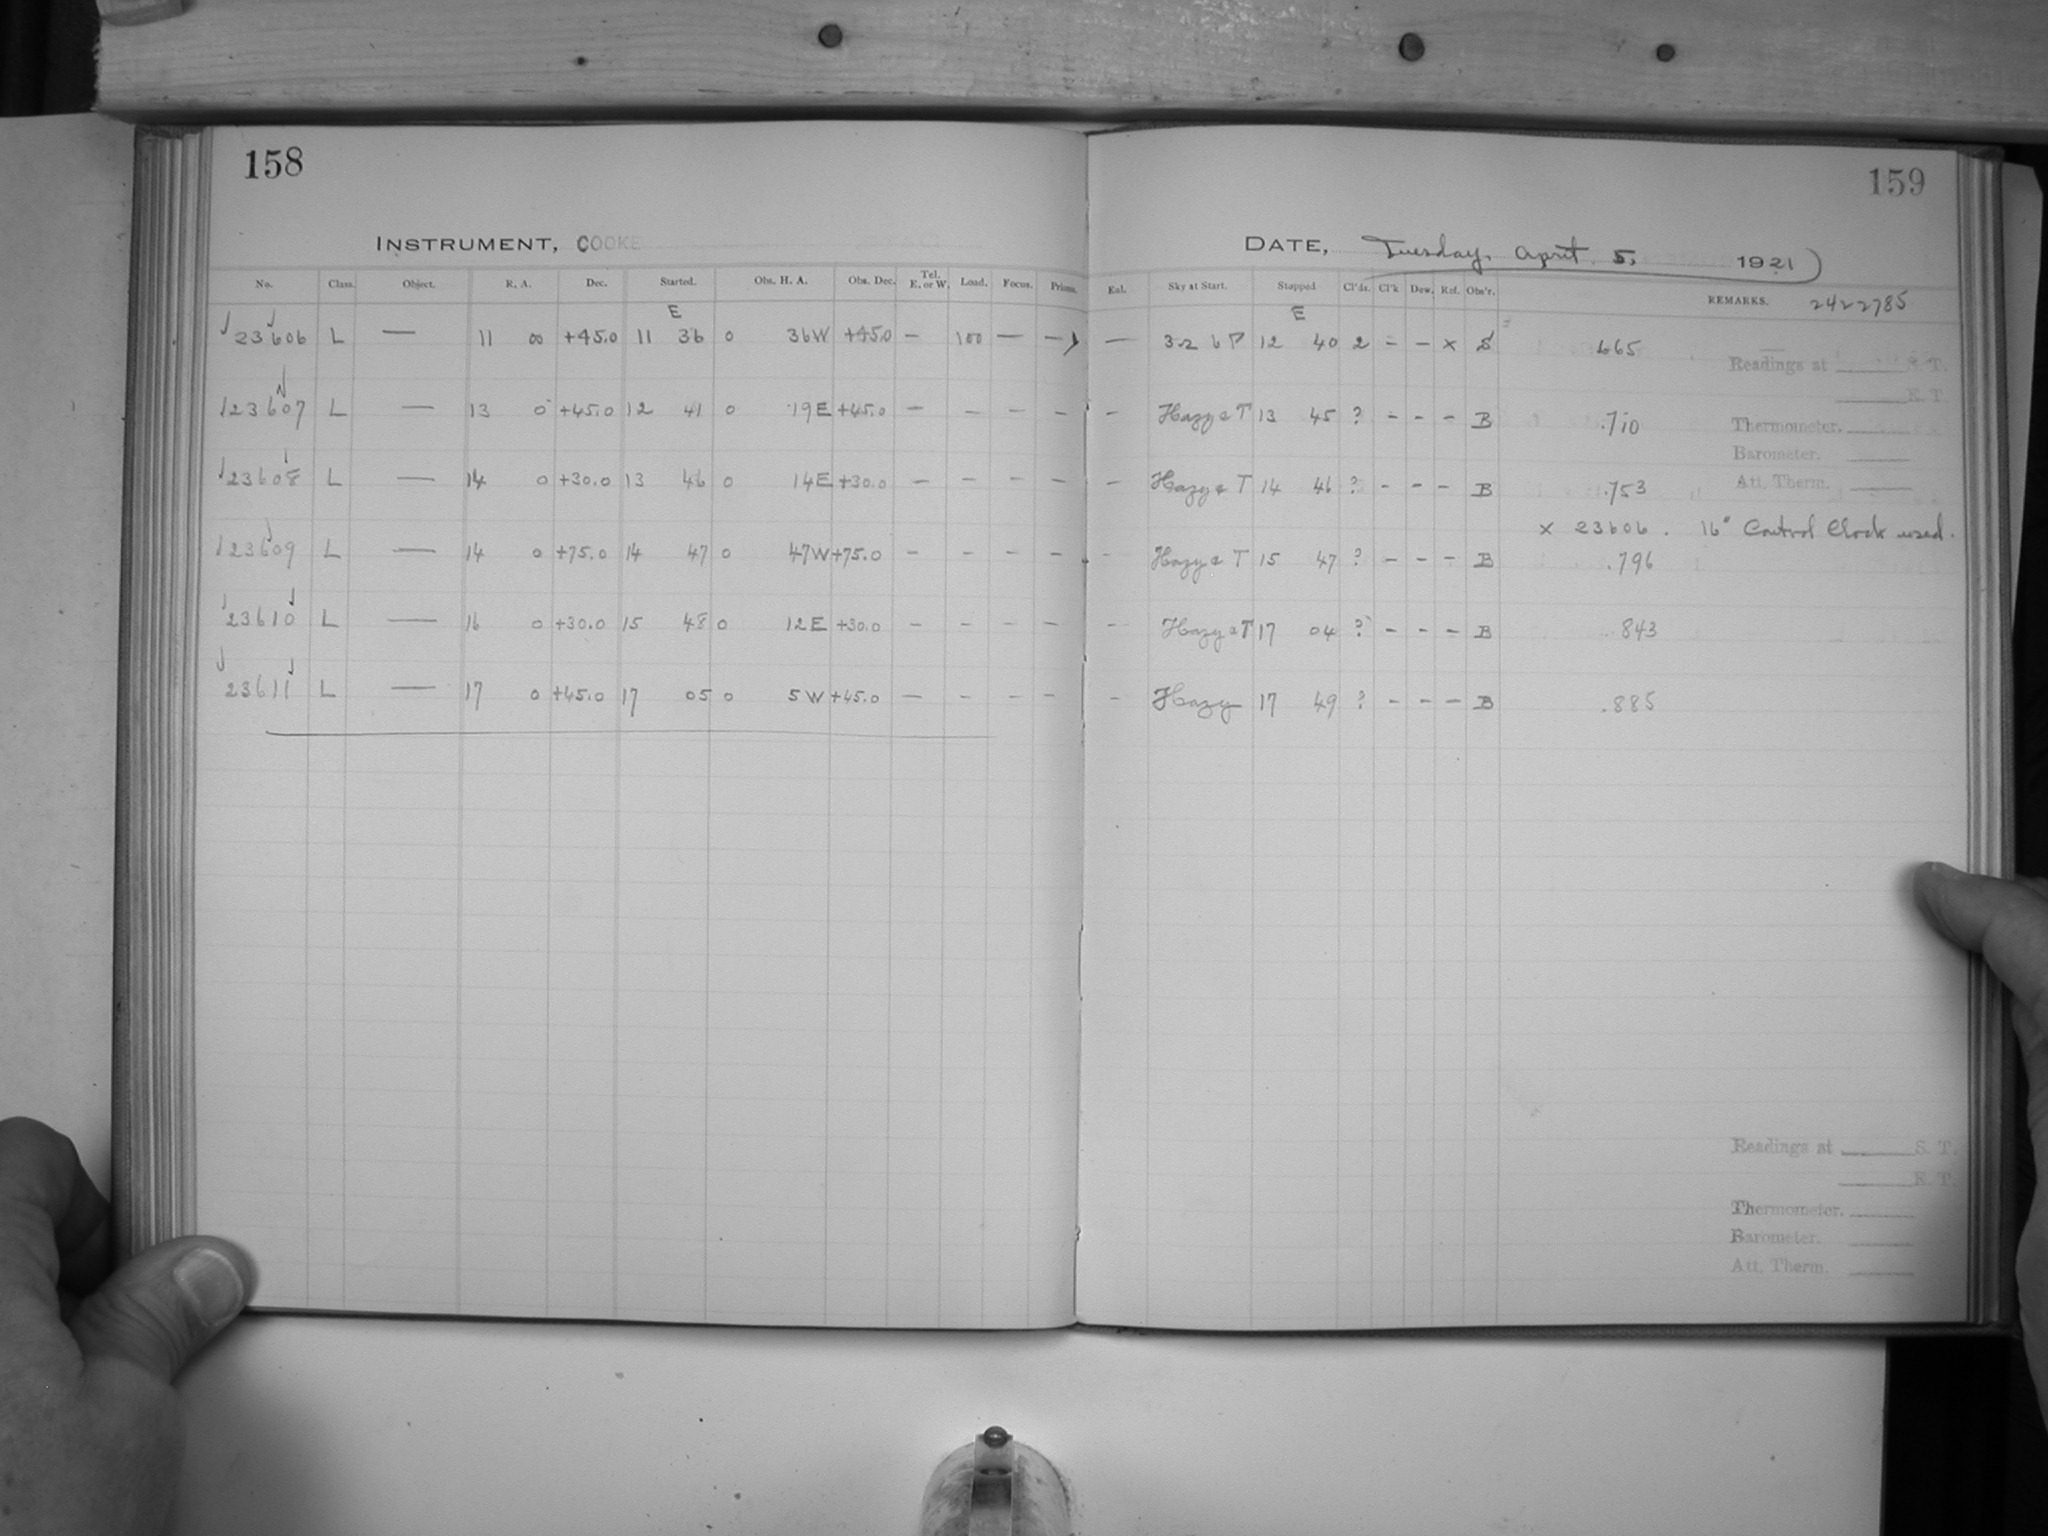 158
159
INSTRUMENT, COOKE
DATE, Tuesday, April 5, 1921
No. Class. Object. R. A. Dec. Started. Obs. H. A. Obs. Dec. Tel. E. or W. Load. Focus. Prisms. Eul. Sky at Start. Stopped Cl'ds. Cl'k Dew. Ref. Obs'r. REMARKS. 2422785
E E
23606 L — 11 00 +45.0 11 36 0 36W +45.0 — 100 — — — 12 40 2 – – x S 665
Readings at S. T.
E. T.
23607 L — 13 0 +45.0 12 41 0 19E +45.0 – – – – – Hazy & T 13 45 ? – – – B .710
Thermometer.
Barometer.
23608 L — 14 0 +30.0 13 46 0 14E +30.0 – – – – – Hazy & T 14 46 ? – – – B .753
Att. Therm.
x 23606. 16" Control Clock used.
23609 L — 14 0 +75.0 14 47 0 47W +75.0 – – – – – Hazy & T 15 47 ? – – – B .796
23610 L — 16 0 +30.0 15 48 0 12E +30.0 – – – – – Hazy & T 17 04 ? – – – B 843
23611 L — 17 0 +45.0 17 05 0 5W +45.0 – – – – – Hazy 17 49 ? – – – B .885
Readings at S. T.
E. T.
Thermometer.
Barometer.
Att. Therm.